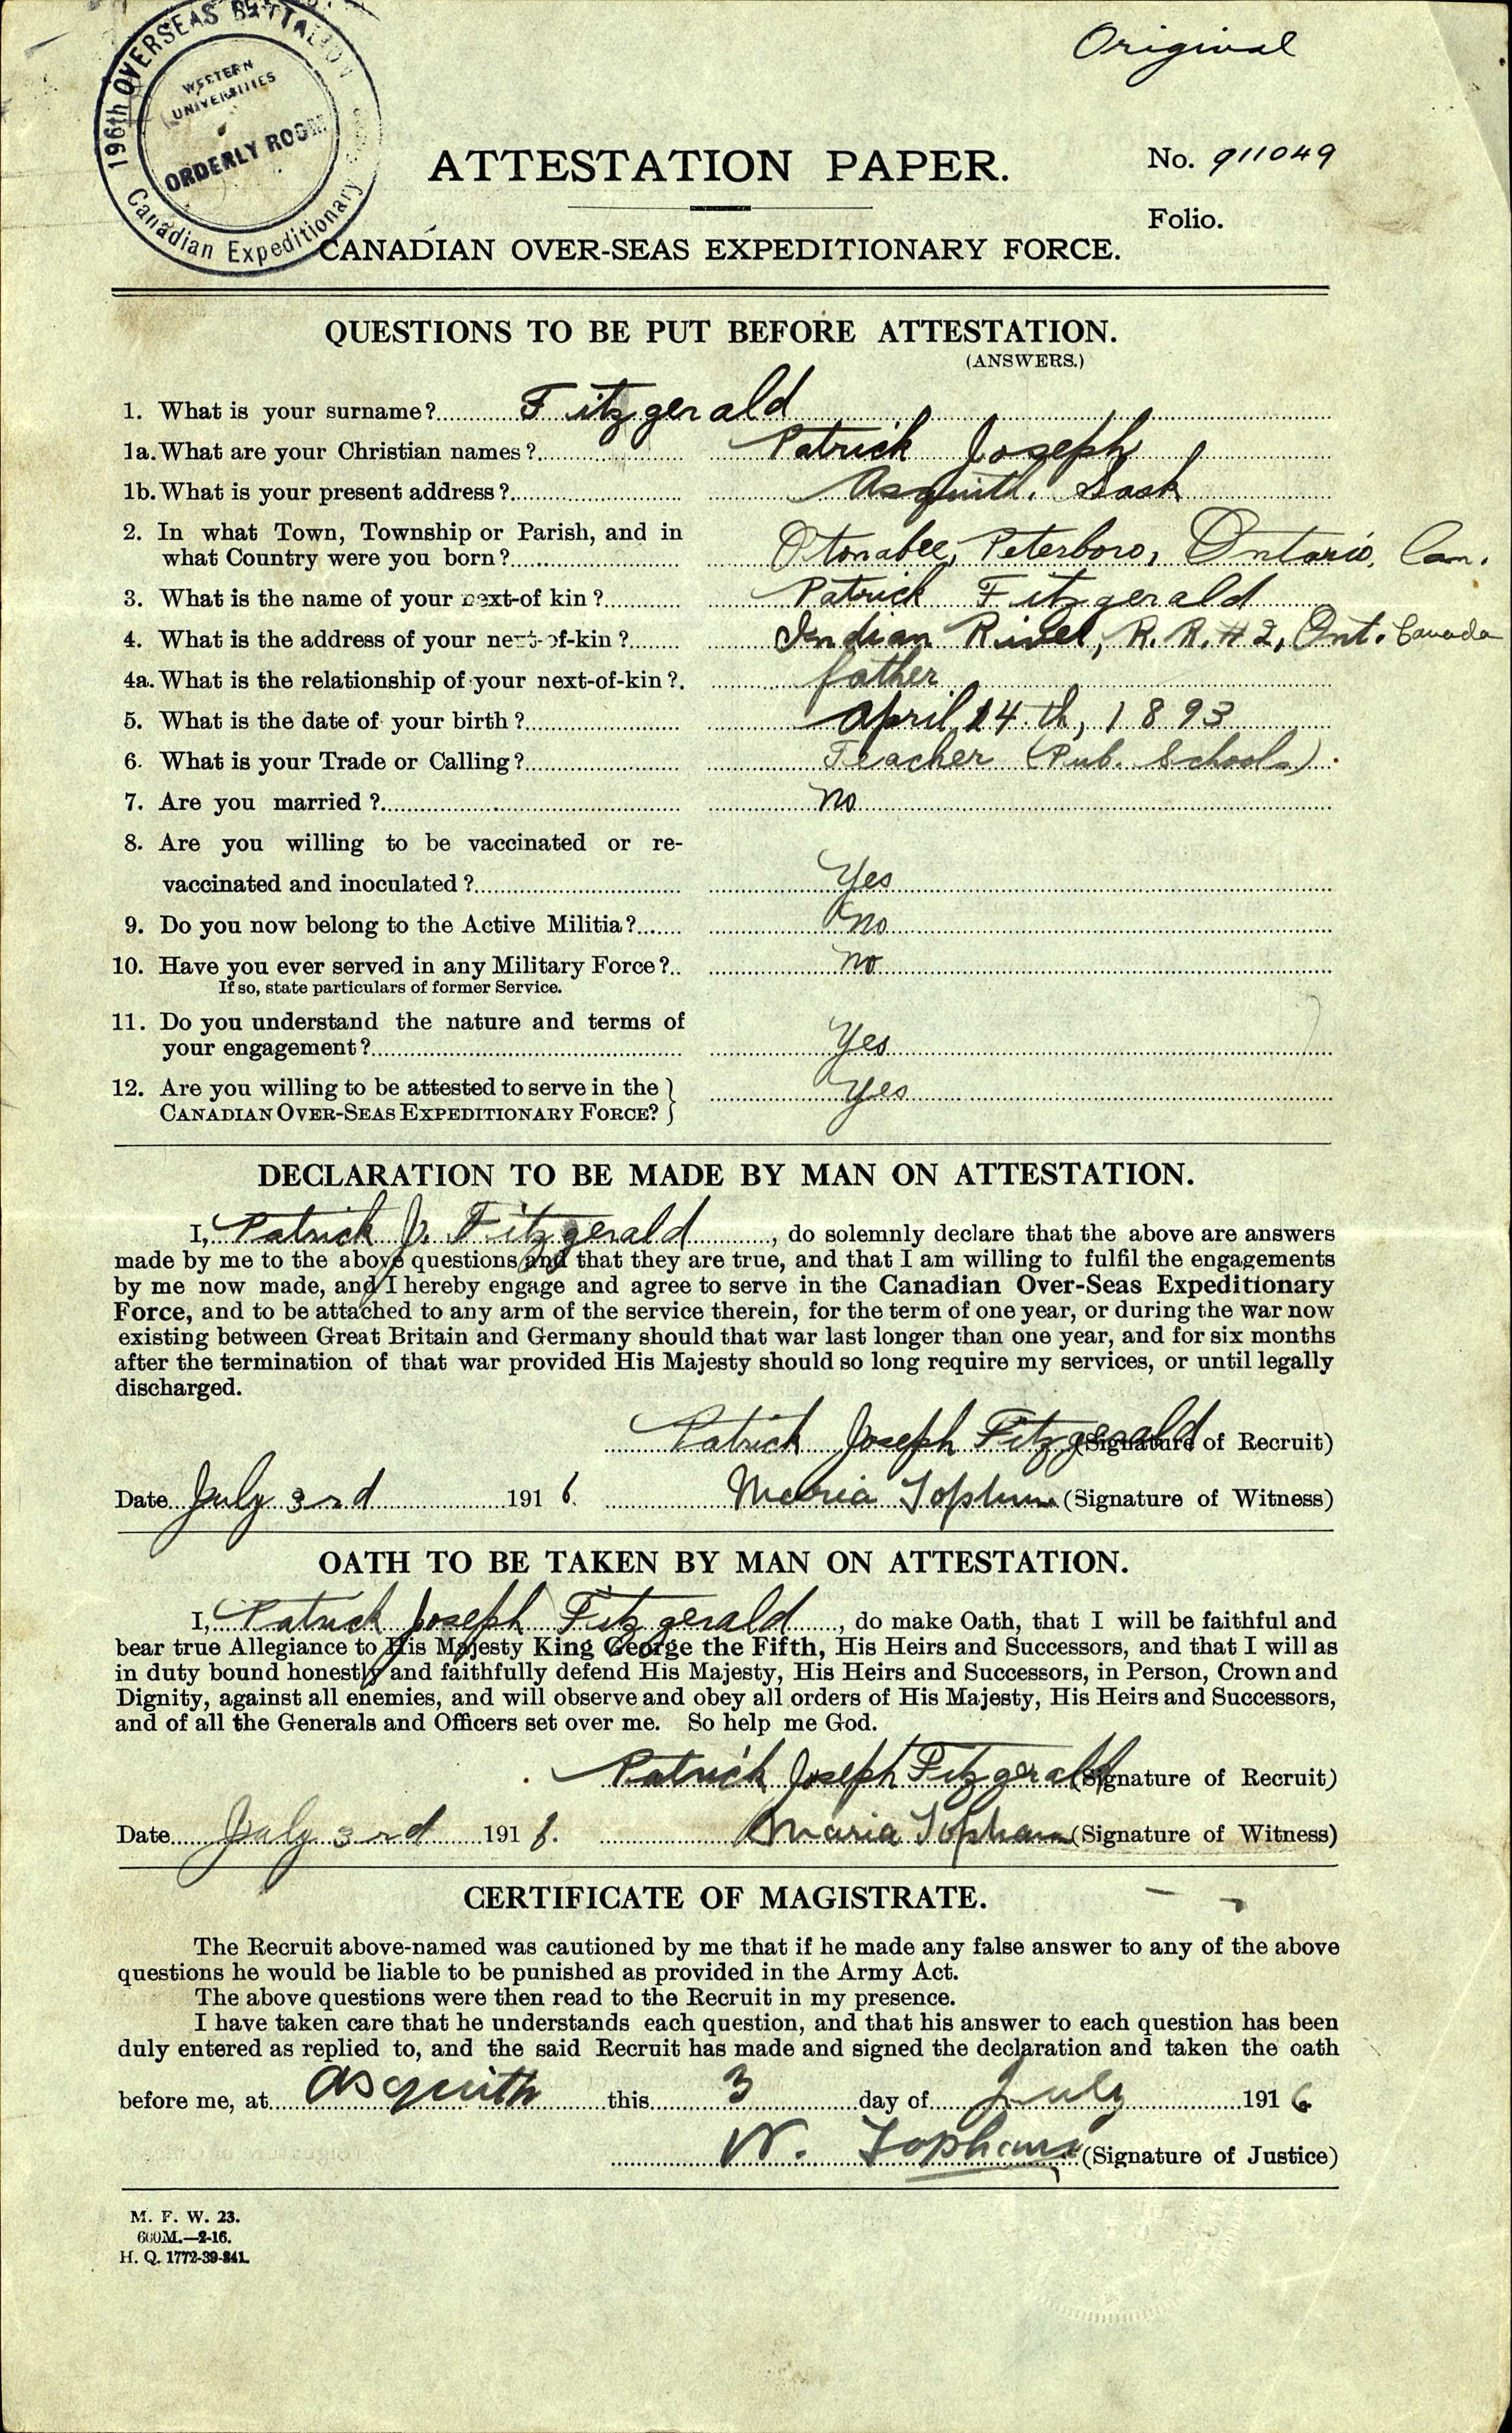 196th OVERSEAS BATTALION
WESTERN
UNIVERSITIES
ORDERLY ROOM
Canadian Expeditionary
Original
ATTESTATION PAPER.
No. 911049
Folio.
CANADIAN OVER-SEAS EXPEDITIONARY FORCE.
QUESTIONS TO BE PUT BEFORE ATTESTATION.
(ANSWERS.)
1. What is your surname? Fitzgerald
1a. What are your Christian names? Patrick Joseph
1b. What is your present address? Asquith, Sask
2. In what Town, Township or Parish, and in
what Country were you born? Otonabee, Peterboro, Ontario, Can.
3. What is the name of your next-of kin? Patrick Fitzgerald
4. What is the address of your next-of-kin? Indian River, R. R. # 2, Ont. Canada
4a. What is the relationship of your next-of-kin? father
5. What is the date of your birth? April 14th, 1893
6. What is your Trade or Calling? Teacher (Pub. Schools).
7. Are you married? no
8. Are you willing to be vaccinated or re-
vaccinated and inoculated? Yes
9. Do you now belong to the Active Militia? no
10. Have you ever served in any Military Force? no
If so, state particulars of former Service.
11. Do you understand the nature and terms of
your engagement? Yes
12. Are you willing to be attested to serve in the } Yes
CANADIAN OVER-SEAS EXPEDITIONARY FORCE?
DECLARATION TO BE MADE BY MAN ON ATTESTATION.
I, Patrick J. Fitzgerald, do solemnly declare that the above are answers
made by me to the above questions and that they are true, and that I am willing to fulfil the engagements
by me now made, and I hereby engage and agree to serve in the Canadian Over-Seas Expeditionary
Force, and to be attached to any arm of the service therein, for the term of one year, or during the war now
existing between Great Britain and Germany should that war last longer than one year, and for six months
after the termination of that war provided His Majesty should so long require my services, or until legally
discharged.
Patrick Joseph Fitzgerald (Signature of Recruit)
Date July 3rd 1916. Maria Topham (Signature of Witness)
OATH TO BE TAKEN BY MAN ON ATTESTATION.
I, Patrick Joseph Fitzgerald, do make Oath, that I will be faithful and
bear true Allegiance to His Majesty King George the Fifth, His Heirs and Successors, and that I will as
in duty bound honestly and faithfully defend His Majesty, His Heirs and Successors, in Person, Crown and
Dignity, against all enemies, and will observe and obey all orders of His Majesty, His Heirs and Successors,
and of all the Generals and Officers set over me. So help me God.
Patrick Joseph Fitzgerald (Signature of Recruit)
Date July 3rd 1916. Maria Topham (Signature of Witness)
CERTIFICATE OF MAGISTRATE.
The Recruit above-named was cautioned by me that if he made any false answer to any of the above
questions he would be liable to be punished as provided in the Army Act.
The above questions were then read to the Recruit in my presence.
I have taken care that he understands each question, and that his answer to each question has been
duly entered as replied to, and the said Recruit has made and signed the declaration and taken the oath
before me, at Asquith this 3 day of July 1916
W. Topham (Signature of Justice)
M. F. W. 23.
600M.—2-16.
H. Q. 1772-39-841.